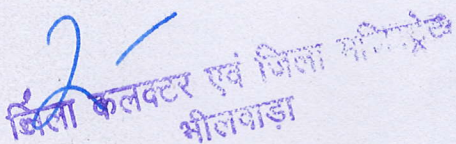 जिला कलक्टर एवं जिला मजिस्ट्रेट
भीलवाड़ा